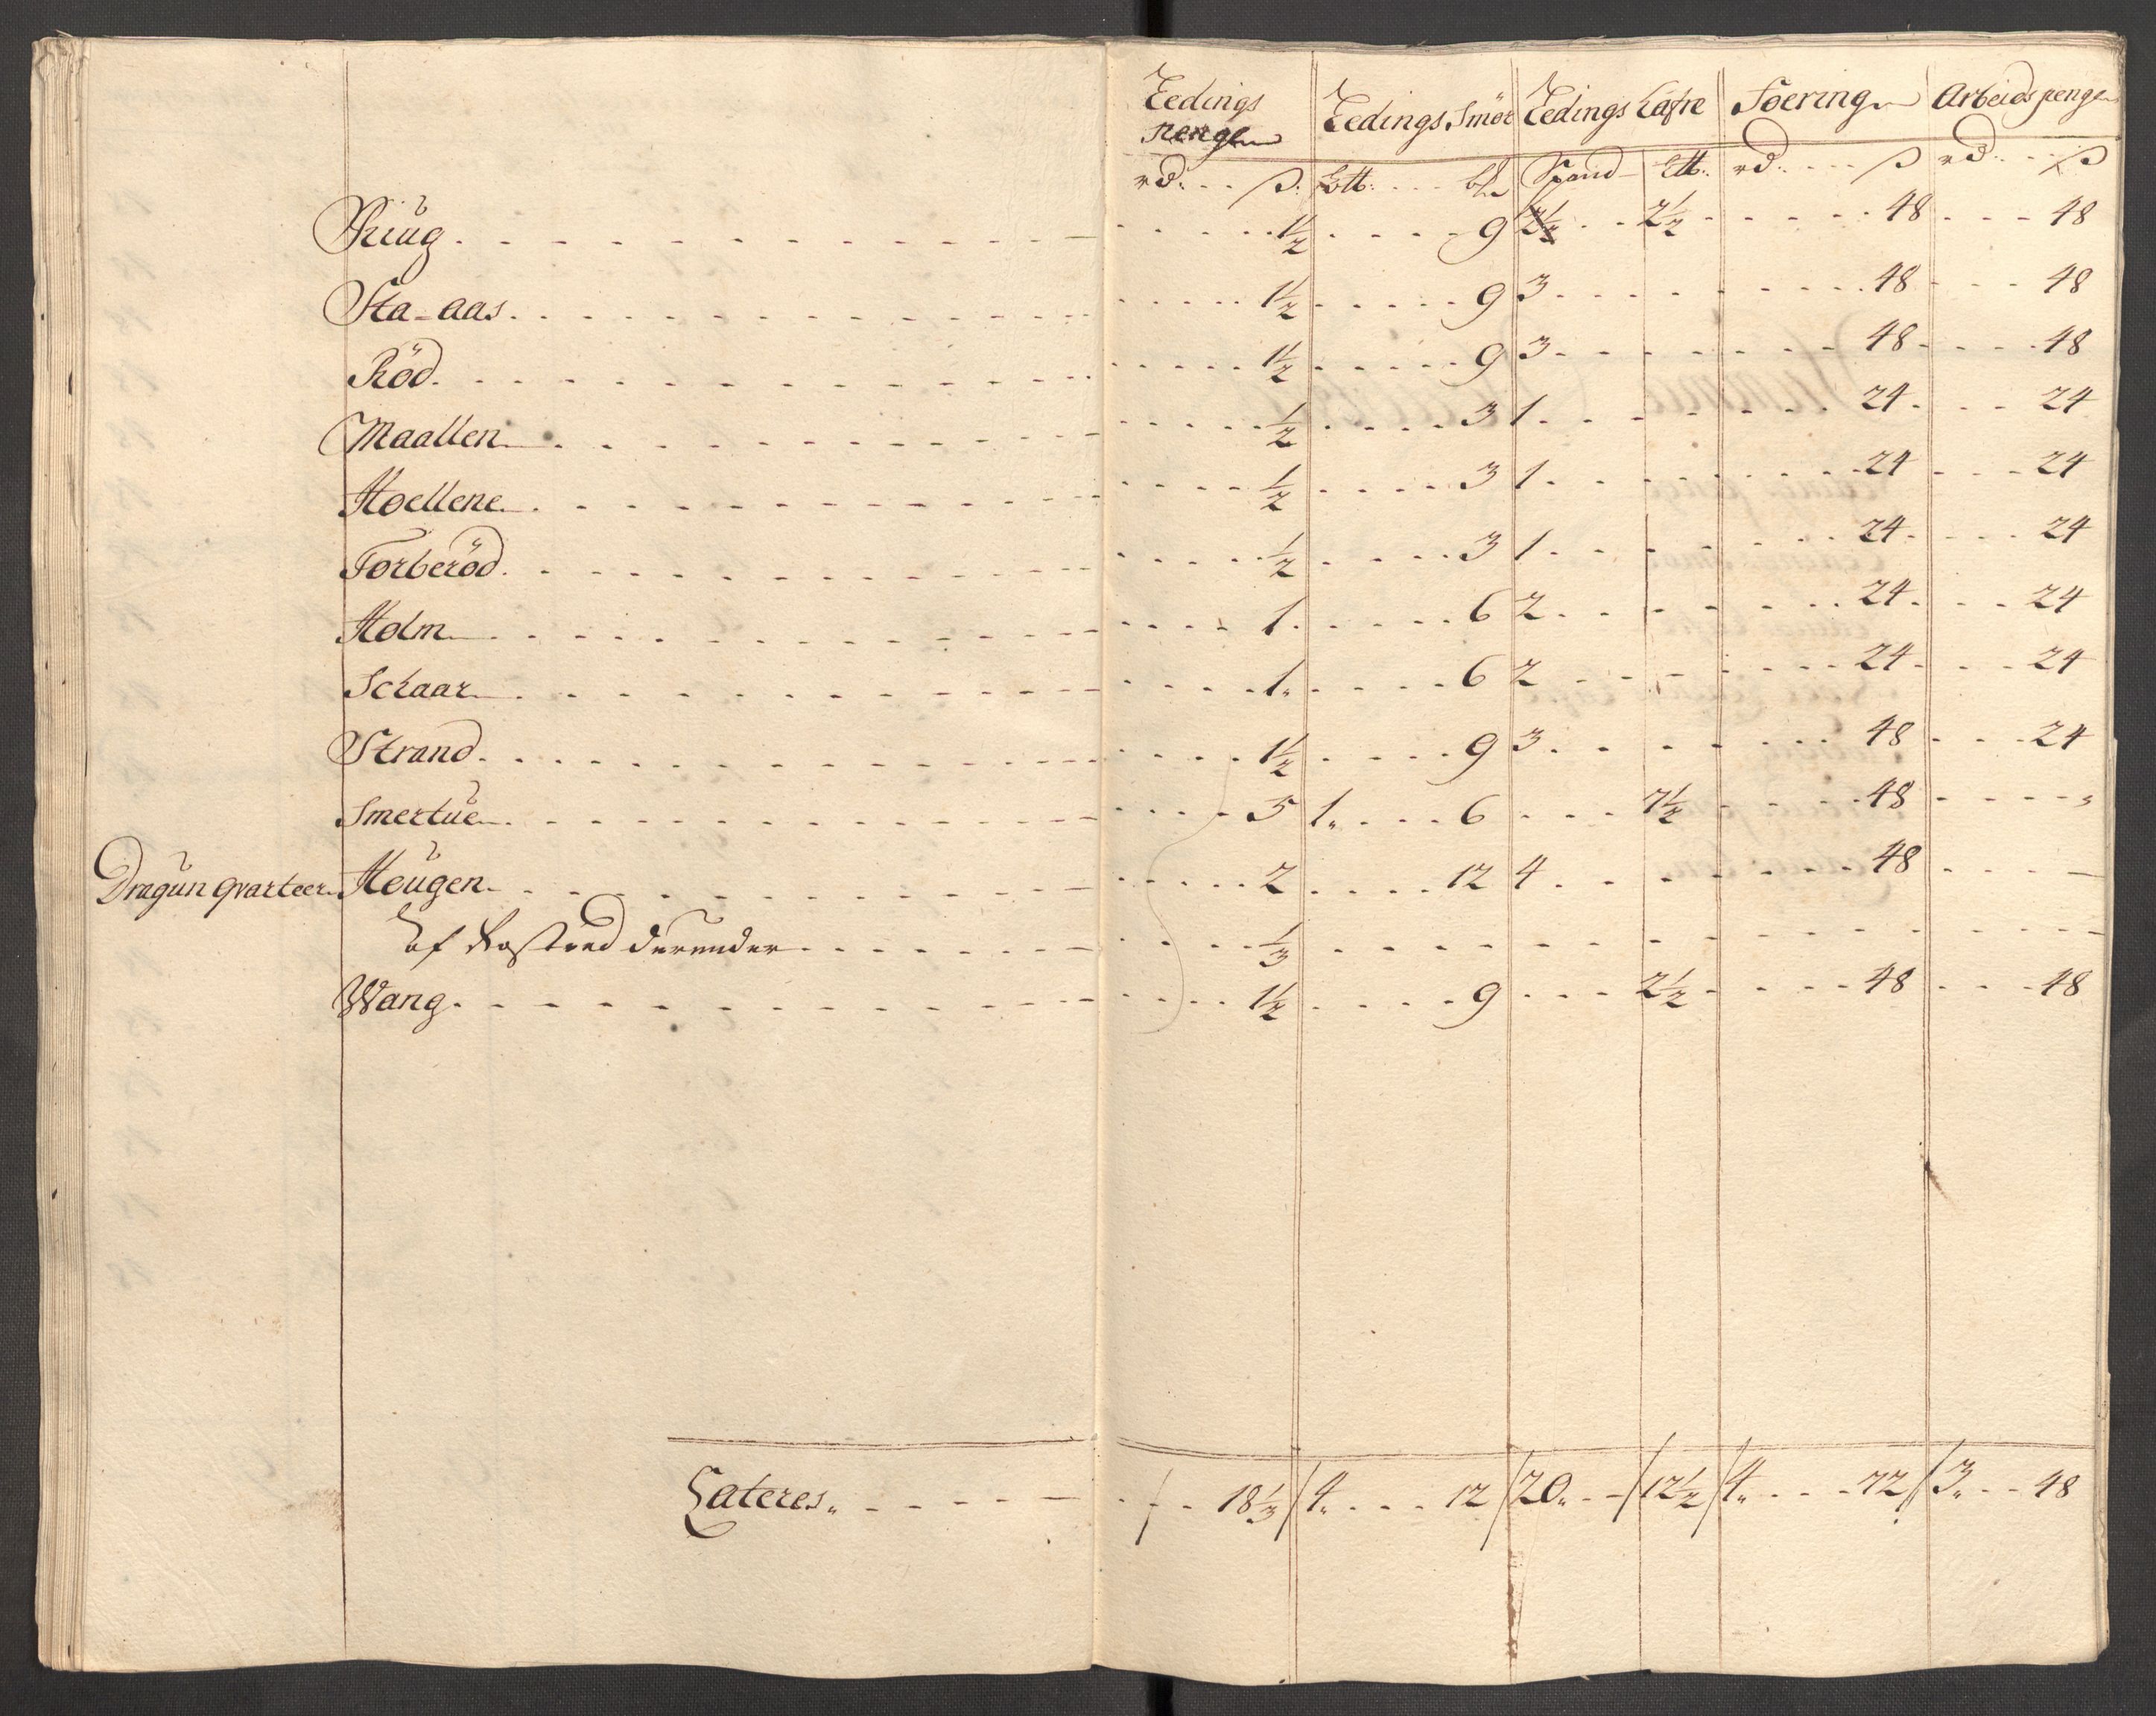 Leedings Pengen Leedings Smör Leedings Hafre Foering Arbeids penge
rd: ß: Ltt: Spand Ltt: rd: ß rd: ß
Riug 1½ 9 2½ 48 48
Sta-aas 1½ 9 3 48 48
Röd 1½ 9 3 48 48
Maallen ½ 3 1 24 24
Hoellene ½ 3 1 24 24
Torberöd ½ 3 1 24 24
Holm 1 6 2 24 24
Schaar 1 6 2 24 24
Strand 1½ 9 3 48 24
Smertue 5 1 6 7½ 48
Dragun qvarteer Heugen 2 12 4 48
af derunder ⅓
Wang 1½ 9 2½ 48 48
Lateres 18⅓ 4 12 20 12½ 4 72 3 48